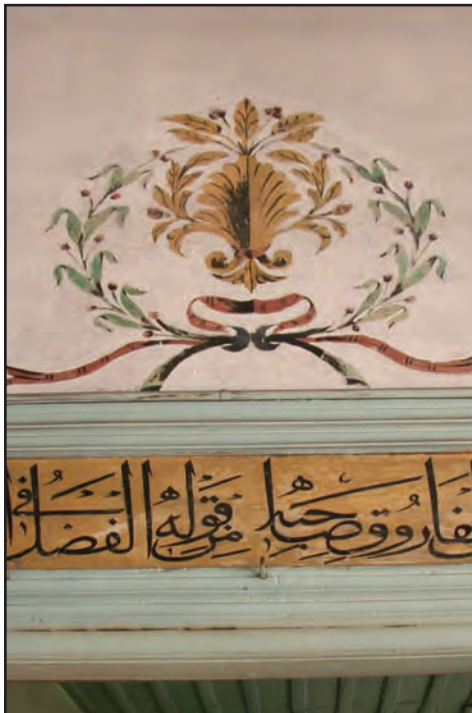 فاروق صاحبه من قوله الفصل في